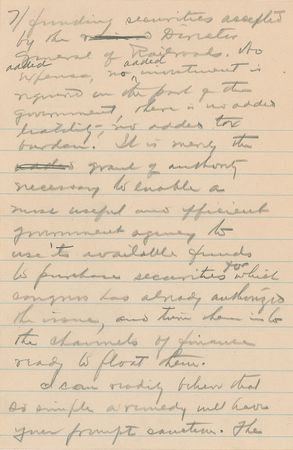 7/ funding securities accepted
by the Director
General of Railroads. No
added expense, no added investment is
required on the part of the
government, there is no added
liability, no added tax
burden. It is merely the
grant of authority
necessary to enable a
most useful and efficient
government agency to
use its available funds
to purchase securities for which
congress has already authorized
the issue, and turn them into
the channels of finance
ready to float them.
I can readily believe that
so simple a remedy will have
your prompt sanction. The